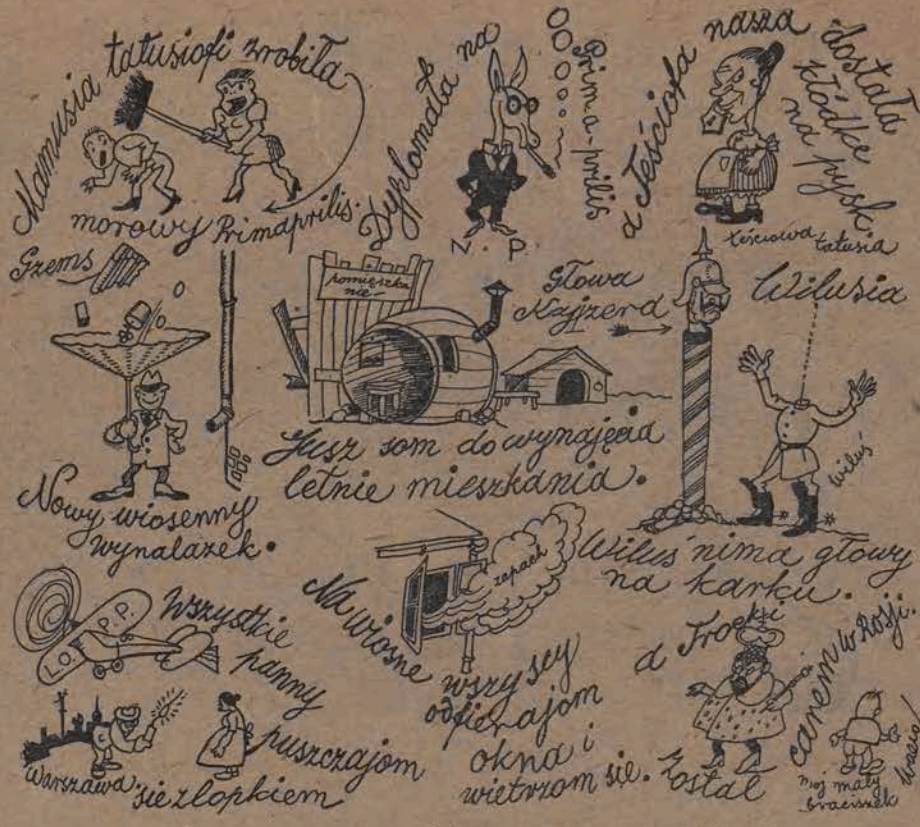 Mamusia tatusiofi zrobiła
morowy Primaprilis.
Dyplomata na
Prima-prilis
N. P.
a teściofa nasza
dostała
kłódke
na pysk
teściowa tatusia
Gzems
Nowy wiosenny
wynalazek.
pomieszka
nie-
Jusz som do wynajęcia
letnie mieszkania.
Głowa
Kajzera
Wilusia
wiluś
Wiluś nima głowy
na karku.
L.O.P.P.
Wszystkie
panny
puszczajom
sie z lopkiem
Warszawa.
Na wiosne
zapach
wszyscy
odfierajom
okna i
wietrzom się.
a Trocki
został
carem w Rosji.
moj mały
braciszek